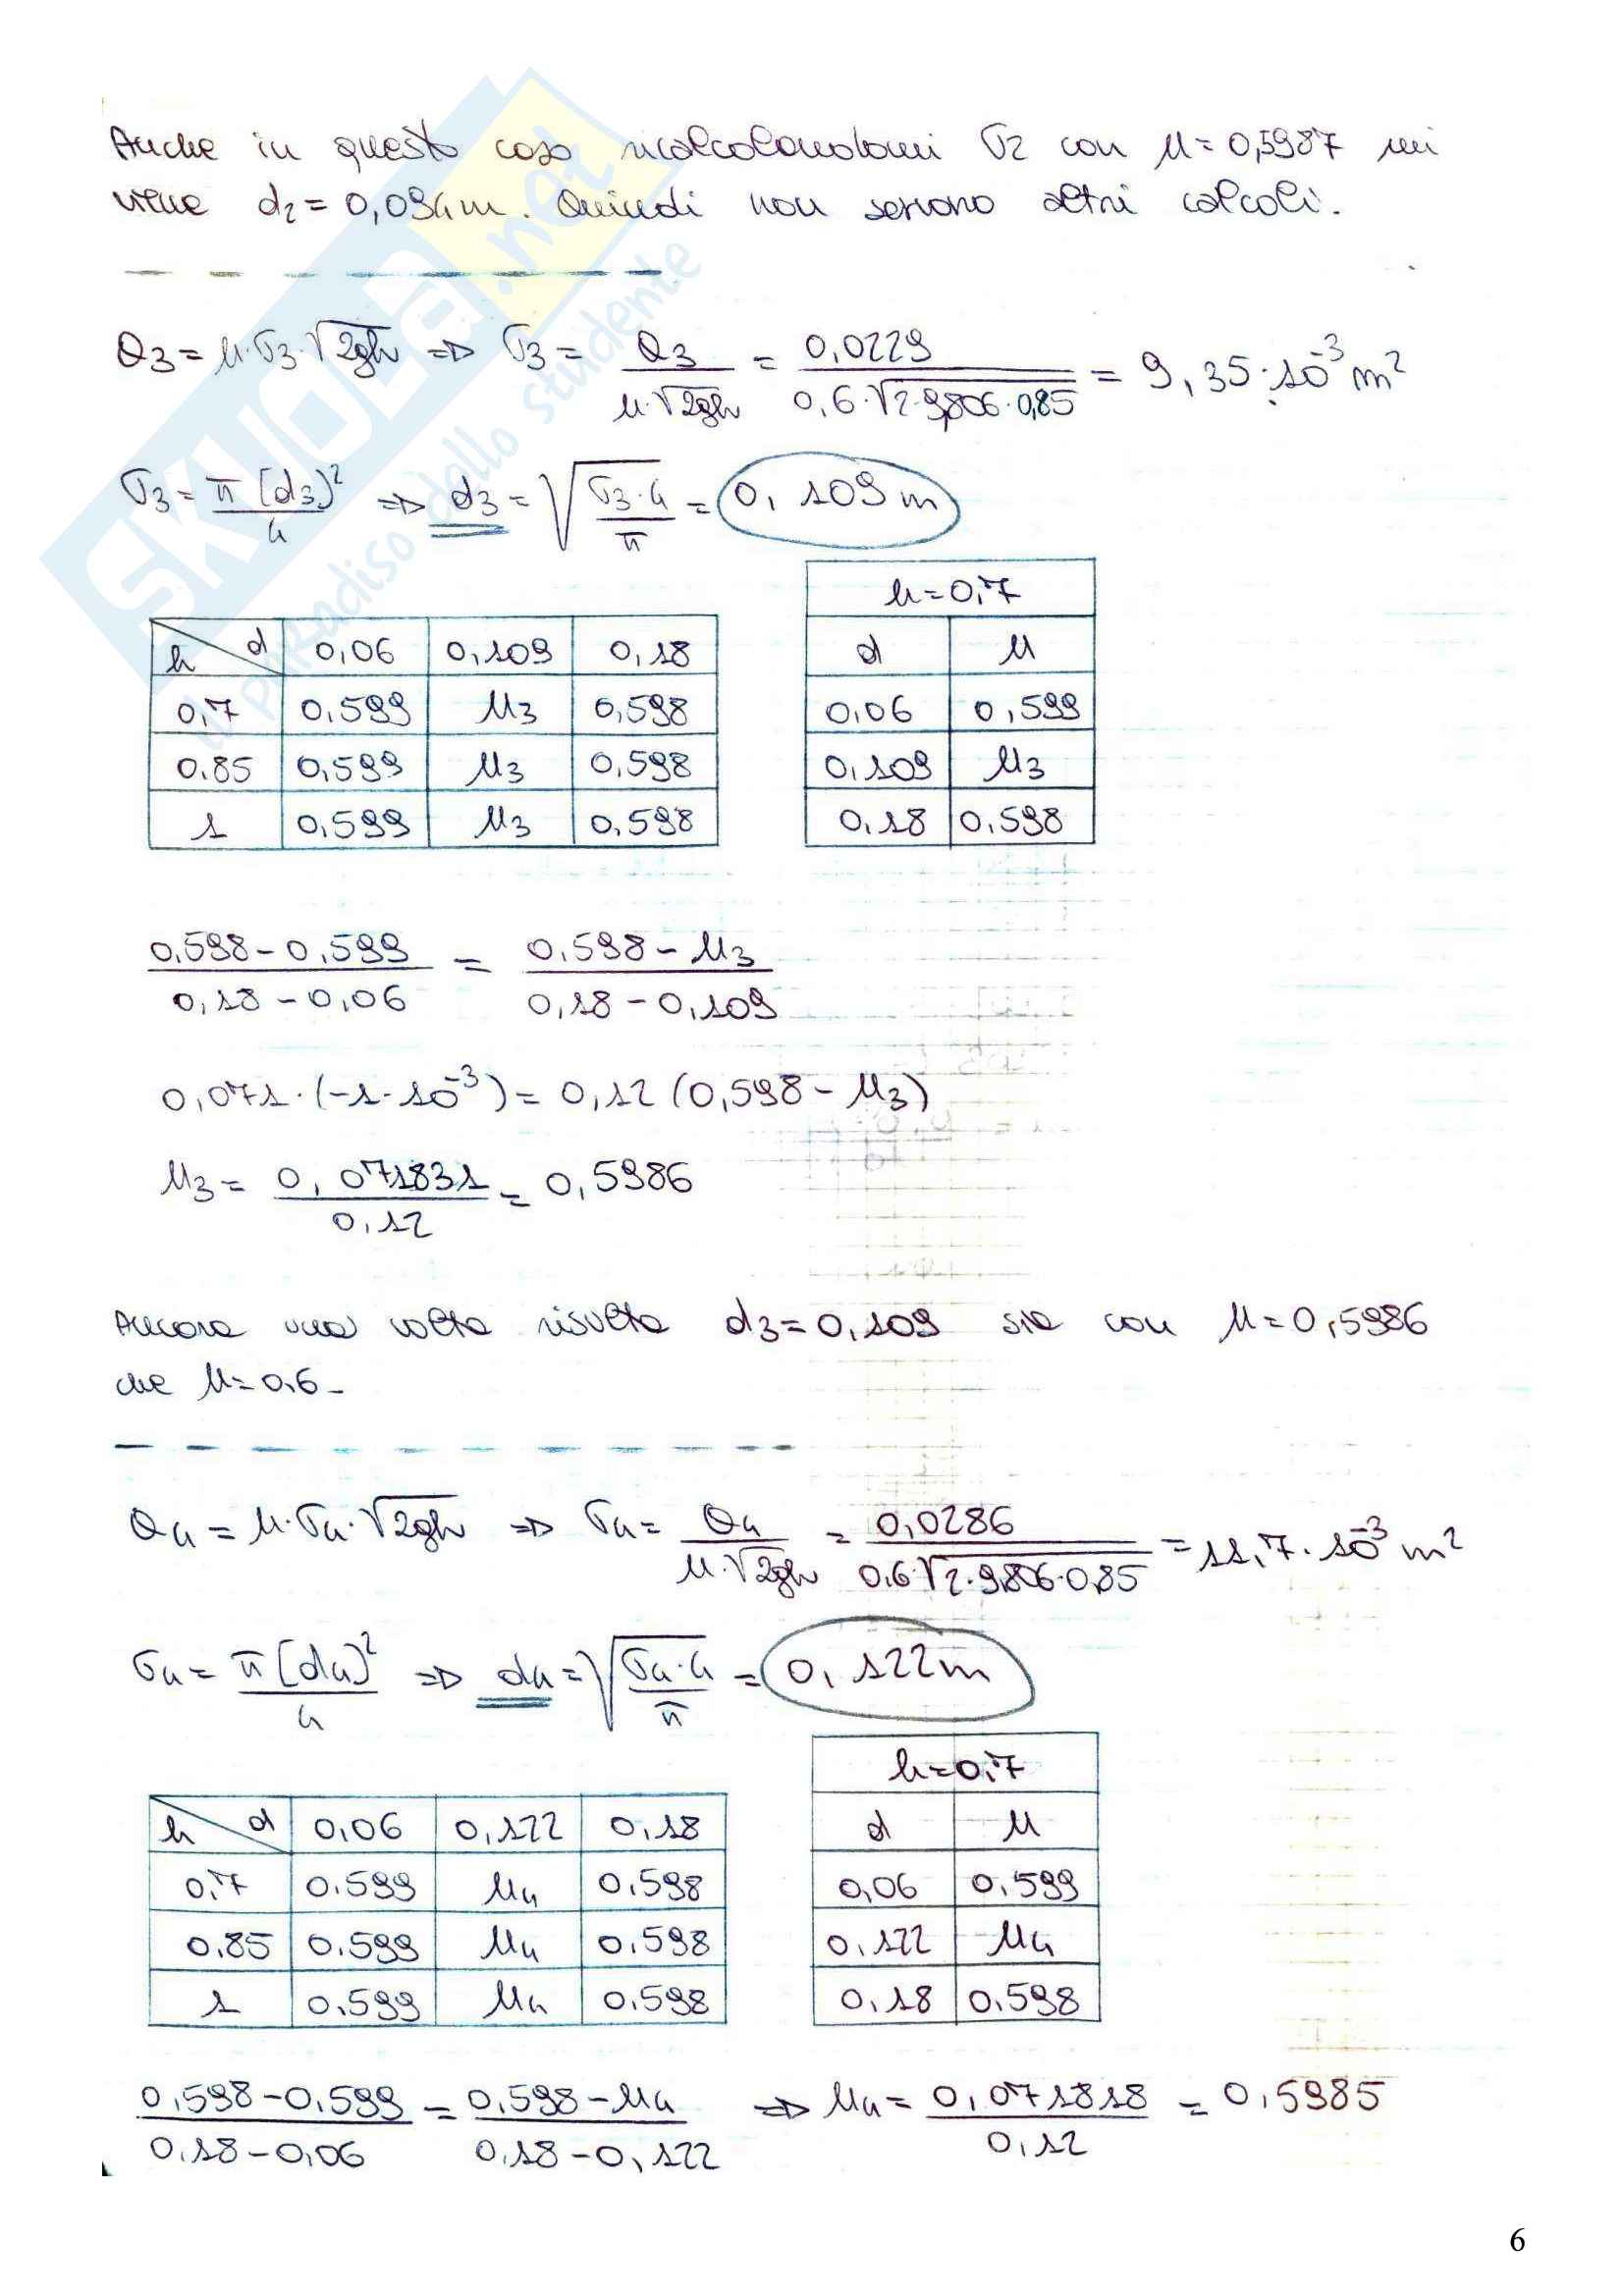 Anche in questo caso ricalcolandomi σ2 con μ = 0,5987 mi
viene d2 = 0,094 m. Quindi non servono altri calcoli.
SKUOLA.net
il paradiso dello studente
Q3 = μ·σ3·√2gh ⇒ σ3 = Q3 / μ·√2gh = 0,0229 / 0,6·√2·9,806·0,85 = 9,35·10^-3 m²
σ3 = π[d3)² / 4 ⇒ d3 = √σ3·4 / π = 0,109 m
h = 0,7
h d 0,06 0,109 0,18
d μ
0,7 0,599 μ3 0,598
0,06 0,599
0,85 0,599 μ3 0,598
0,109 μ3
1 0,599 μ3 0,598
0,18 0,598
0,598 - 0,599 / 0,18 - 0,06 = 0,598 - μ3 / 0,18 - 0,109
0,071·(-1·10^-3) = 0,12 (0,598 - μ3)
μ3 = 0,071831 / 0,12 = 0,5986
Ancora una volta risulta d3 = 0,109 sia con μ = 0,5986
che μ = 0,6 -
Q4 = μ·σ4·√2gh ⇒ σ4 = Q4 / μ·√2gh = 0,0286 / 0,6·√2·9,806·0,85 = 11,7·10^-3 m²
σ4 = π[d4)² / 4 ⇒ d4 = √σ4·4 / π = 0,122 m
h = 0,7
h d 0,06 0,122 0,18
d μ
0,7 0,599 μ4 0,598
0,06 0,599
0,85 0,599 μ4 0,598
0,122 μ4
1 0,599 μ4 0,598
0,18 0,598
0,598 - 0,599 / 0,18 - 0,06 = 0,598 - μ4 / 0,18 - 0,122 ⇒ μ4 = 0,071818 / 0,12 = 0,5985
6